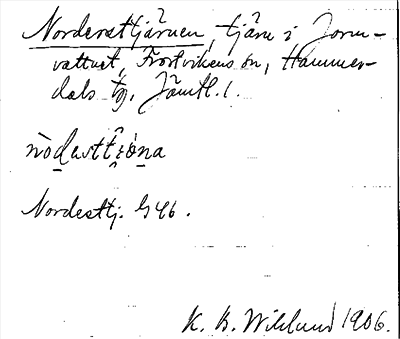 Norderettjärnen, tjärn i Jorm-
vattnet, Frostvikens sn, Hammer-
dals tg, Jämtl. l.
nòdasttiòna
Nordesttj. G 46.
K. B. Wiklund 1906.